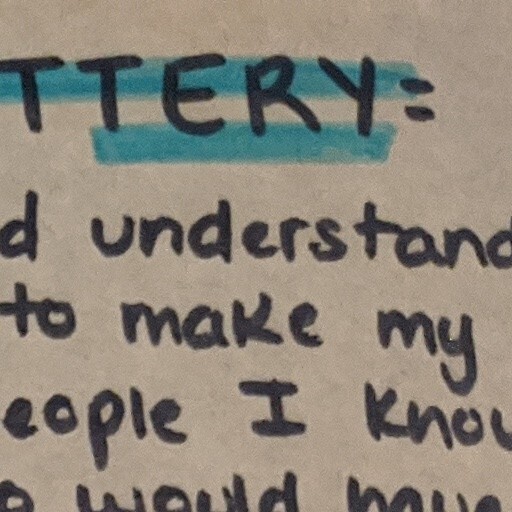 TTERY:
d understand
to make my
eople I know
would have